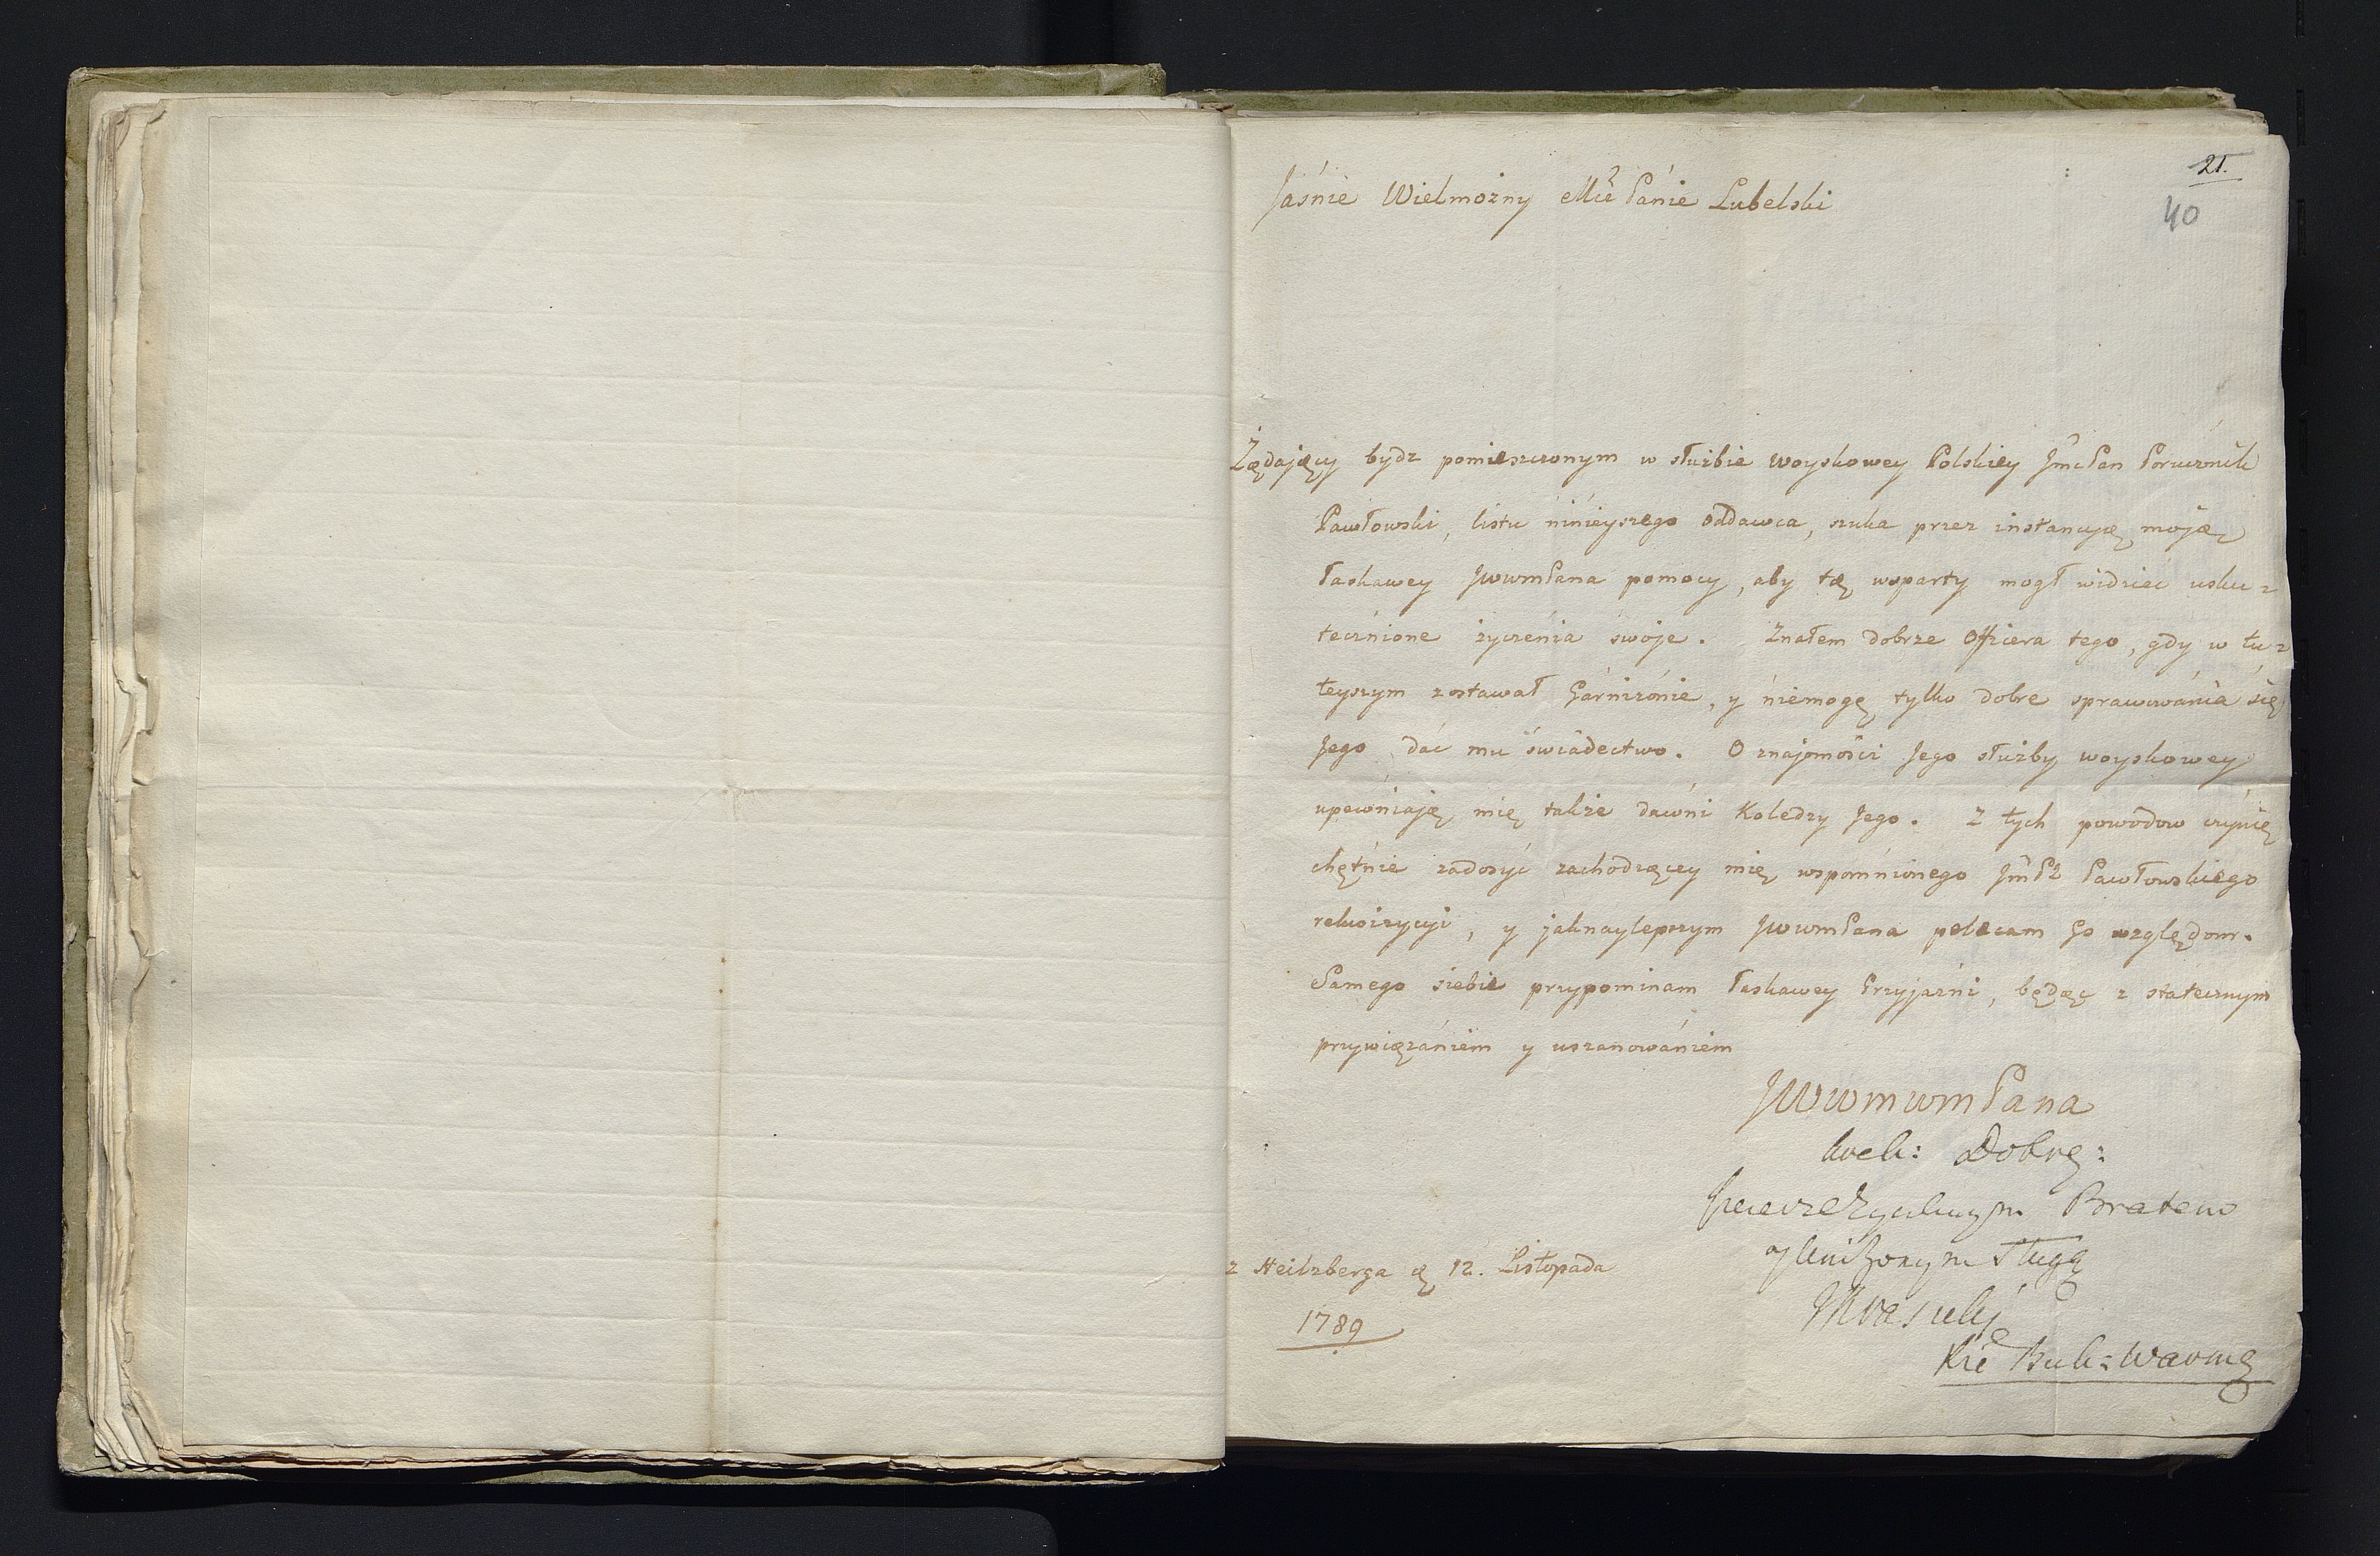 21.
40
Jaśnie Wielmożny Mci Panie Lubelski
Żądający bydz pomieszczonym w służbie woyskowey Polskiey JmcPan Porucznik
Pawłowski, listu ninieyszego oddawca, szuka przez instancyę moję
łaskawey JWWMPana pomocy, aby tą wsparty mogł widzieć usku=
tecznione życzenia swoje. Znałem dobrze Officera tego, gdy w tu=
teyszym zostawał Garnizonie, y niemogę tylko dobre sprawowania się
Jego dać mu świadectwo. O znajomości Jego służby woyskowey
upewniają mię także dawni Koledzy Jego. Z tych powodow czynię
chętnie zadosyć zachodzącey mię wspomnionego JmP. Pawłowskiego
rekwizycyi, y jaknaylepszym JWWMPana polecam Go względom.
Samego siebie przypominam łaskawey Przyjaźni, będąc z statecznym
przywiązaniem y uszanowaniem
JWWMWMPana
Dobrz:
Bratem
y unizonym sługą
Krasicki
z Heilzberga d. 12. Listopada
1789